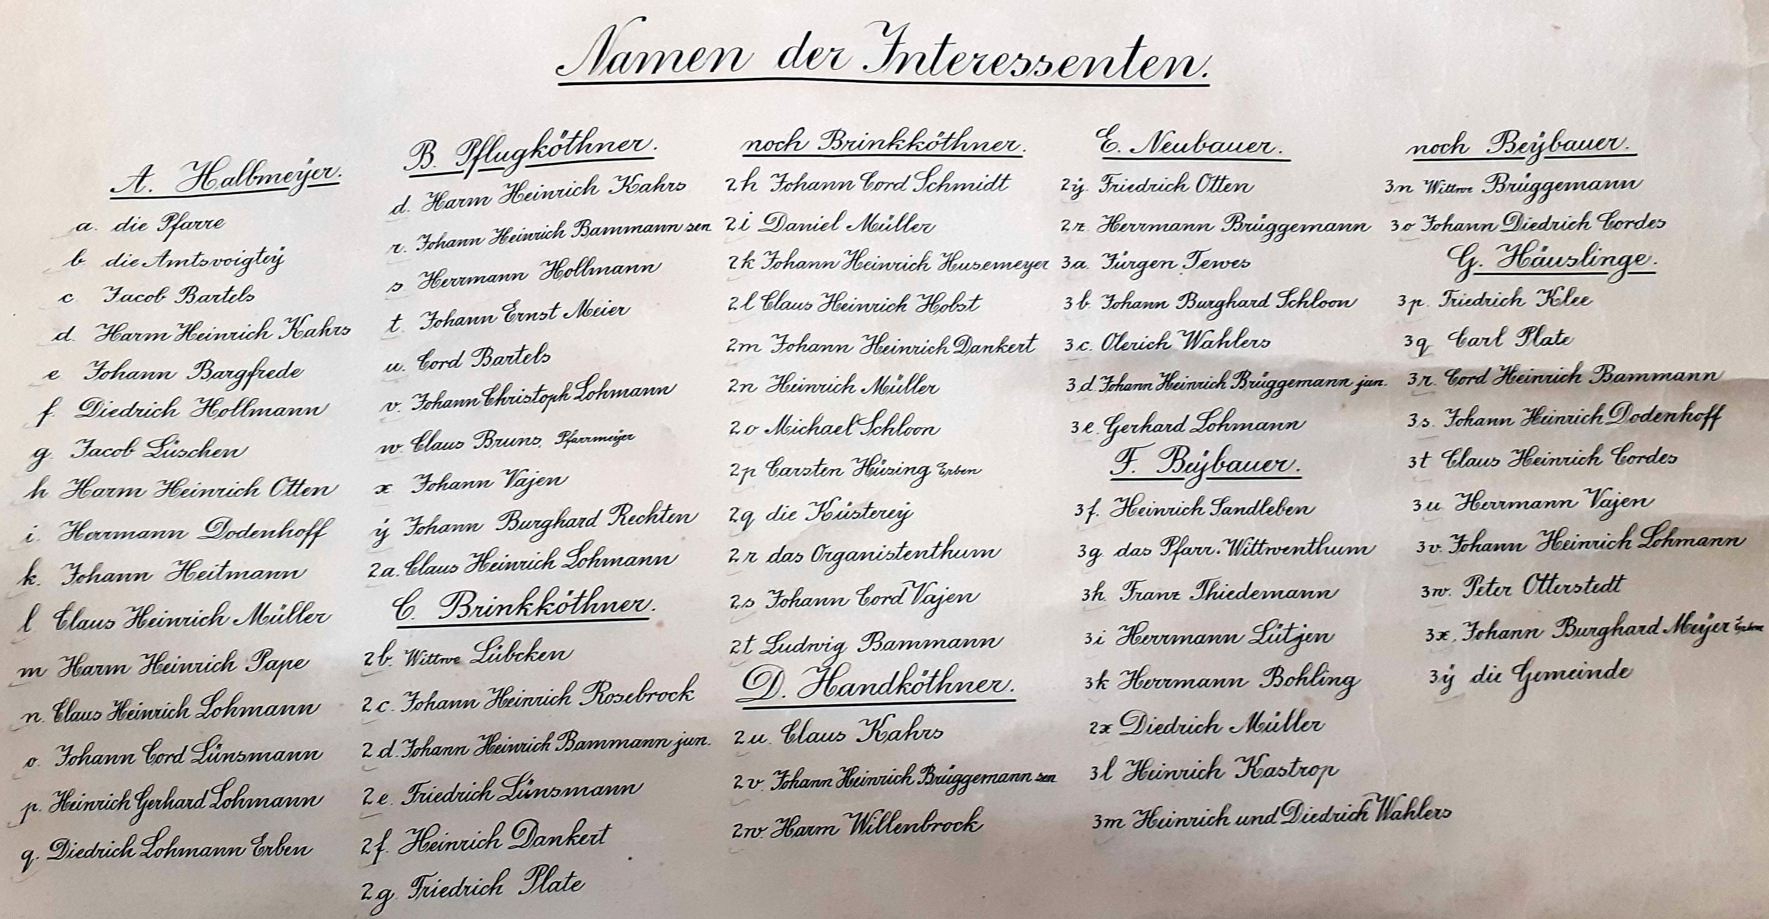 Namen der Interessenten.
A. Halbmeÿer.
a. die Pfarre
b die Amtsvoigteÿ
c Jacob Bartels
d. Harm Heinrich Kahrs
e Johann Bargfrede
f. Diedrich Hollmann
g. Jacob Lüschen
h Harm Heinrich Otten
i. Herrmann Dodenhoff
k. Johann Heitmann
l Claus Heinrich Müller
m Harm Heinrich Pape
n. Claus Heinrich Lohmann
o. Johann Cord Lünsmann
p. Heinrich Gerhard Lohmann
q. Diedrich Lohmann Erben
B. Pflugköthner.
d. Harm Heinrich Kahrs
r. Johann Heinrich Bammann sen
s Herrmann Hollmann
t. Johann Ernst Meier
u. Cord Bartels
v. Johann Christoph Lohmann
w. Claus Bruns, Pfarrmeÿer
x Johann Vajen
ÿ Johann Burghard Rechten
2a. Claus Heinrich Lohmann
C. Brinkköthner.
2b. Wittwe Lübcken
2c. Johann Heinrich Rosebrock
2d. Johann Heinrich Bammann jun.
2e. Friedrich Lünsmann
2f. Heinrich Dankert
2g. Friedrich Plate
noch Brinkköthner.
2h Johann Cord Schmidt
2i Daniel Müller
2k Johann Heinrich Husemeyer
2l Claus Heinrich Hobst
2m Johann Heinrich Dankert
2n Heinrich Müller
2o Michael Schloon
2p Carsten Hüsing Erben
2q die Küstereÿ
2r das Organistenthum
2s Johann Cord Vajen
2t Ludwig Bammann
D. Handköthner.
2u. Claus Kahrs
2v. Johann Heinrich Brüggemann sen
2w. Harm Willenbrock
E. Neubauer.
2ÿ. Friedrich Otten
2z. Herrmann Brüggemann
3a. Jürgen Tewes
3b. Johann Burghard Schloon
3c. Olerich Wahlers
3d. Johann Heinrich Brüggemann jun.
3e. Gerhard Lohmann
F. Beÿbauer.
3f. Heinrich Sandleben
3g das Pfarr-Wittwenthum
3h Franz Thiedemann
3i Herrmann Lütjen
3k Herrmann Bohling
2x Diedrich Müller
3l Heinrich Kastrop
3m Heinrich und Diedrich Wahlers
noch Beÿbauer.
3n Wittwe Brüggemann
3o Johann Diedrich Cordes
G. Häuslinge.
3p. Friedrich Klee
3q Carl Plate
3r. Cord Heinrich Bammann
3s. Johann Heinrich Dodenhoff
3t Claus Heinrich Cordes
3u Herrmann Vajen
3v. Johann Heinrich Lohmann
3w. Peter Otterstedt
3x. Johann Burghard Meÿer Erben
3ÿ die Gemeinde